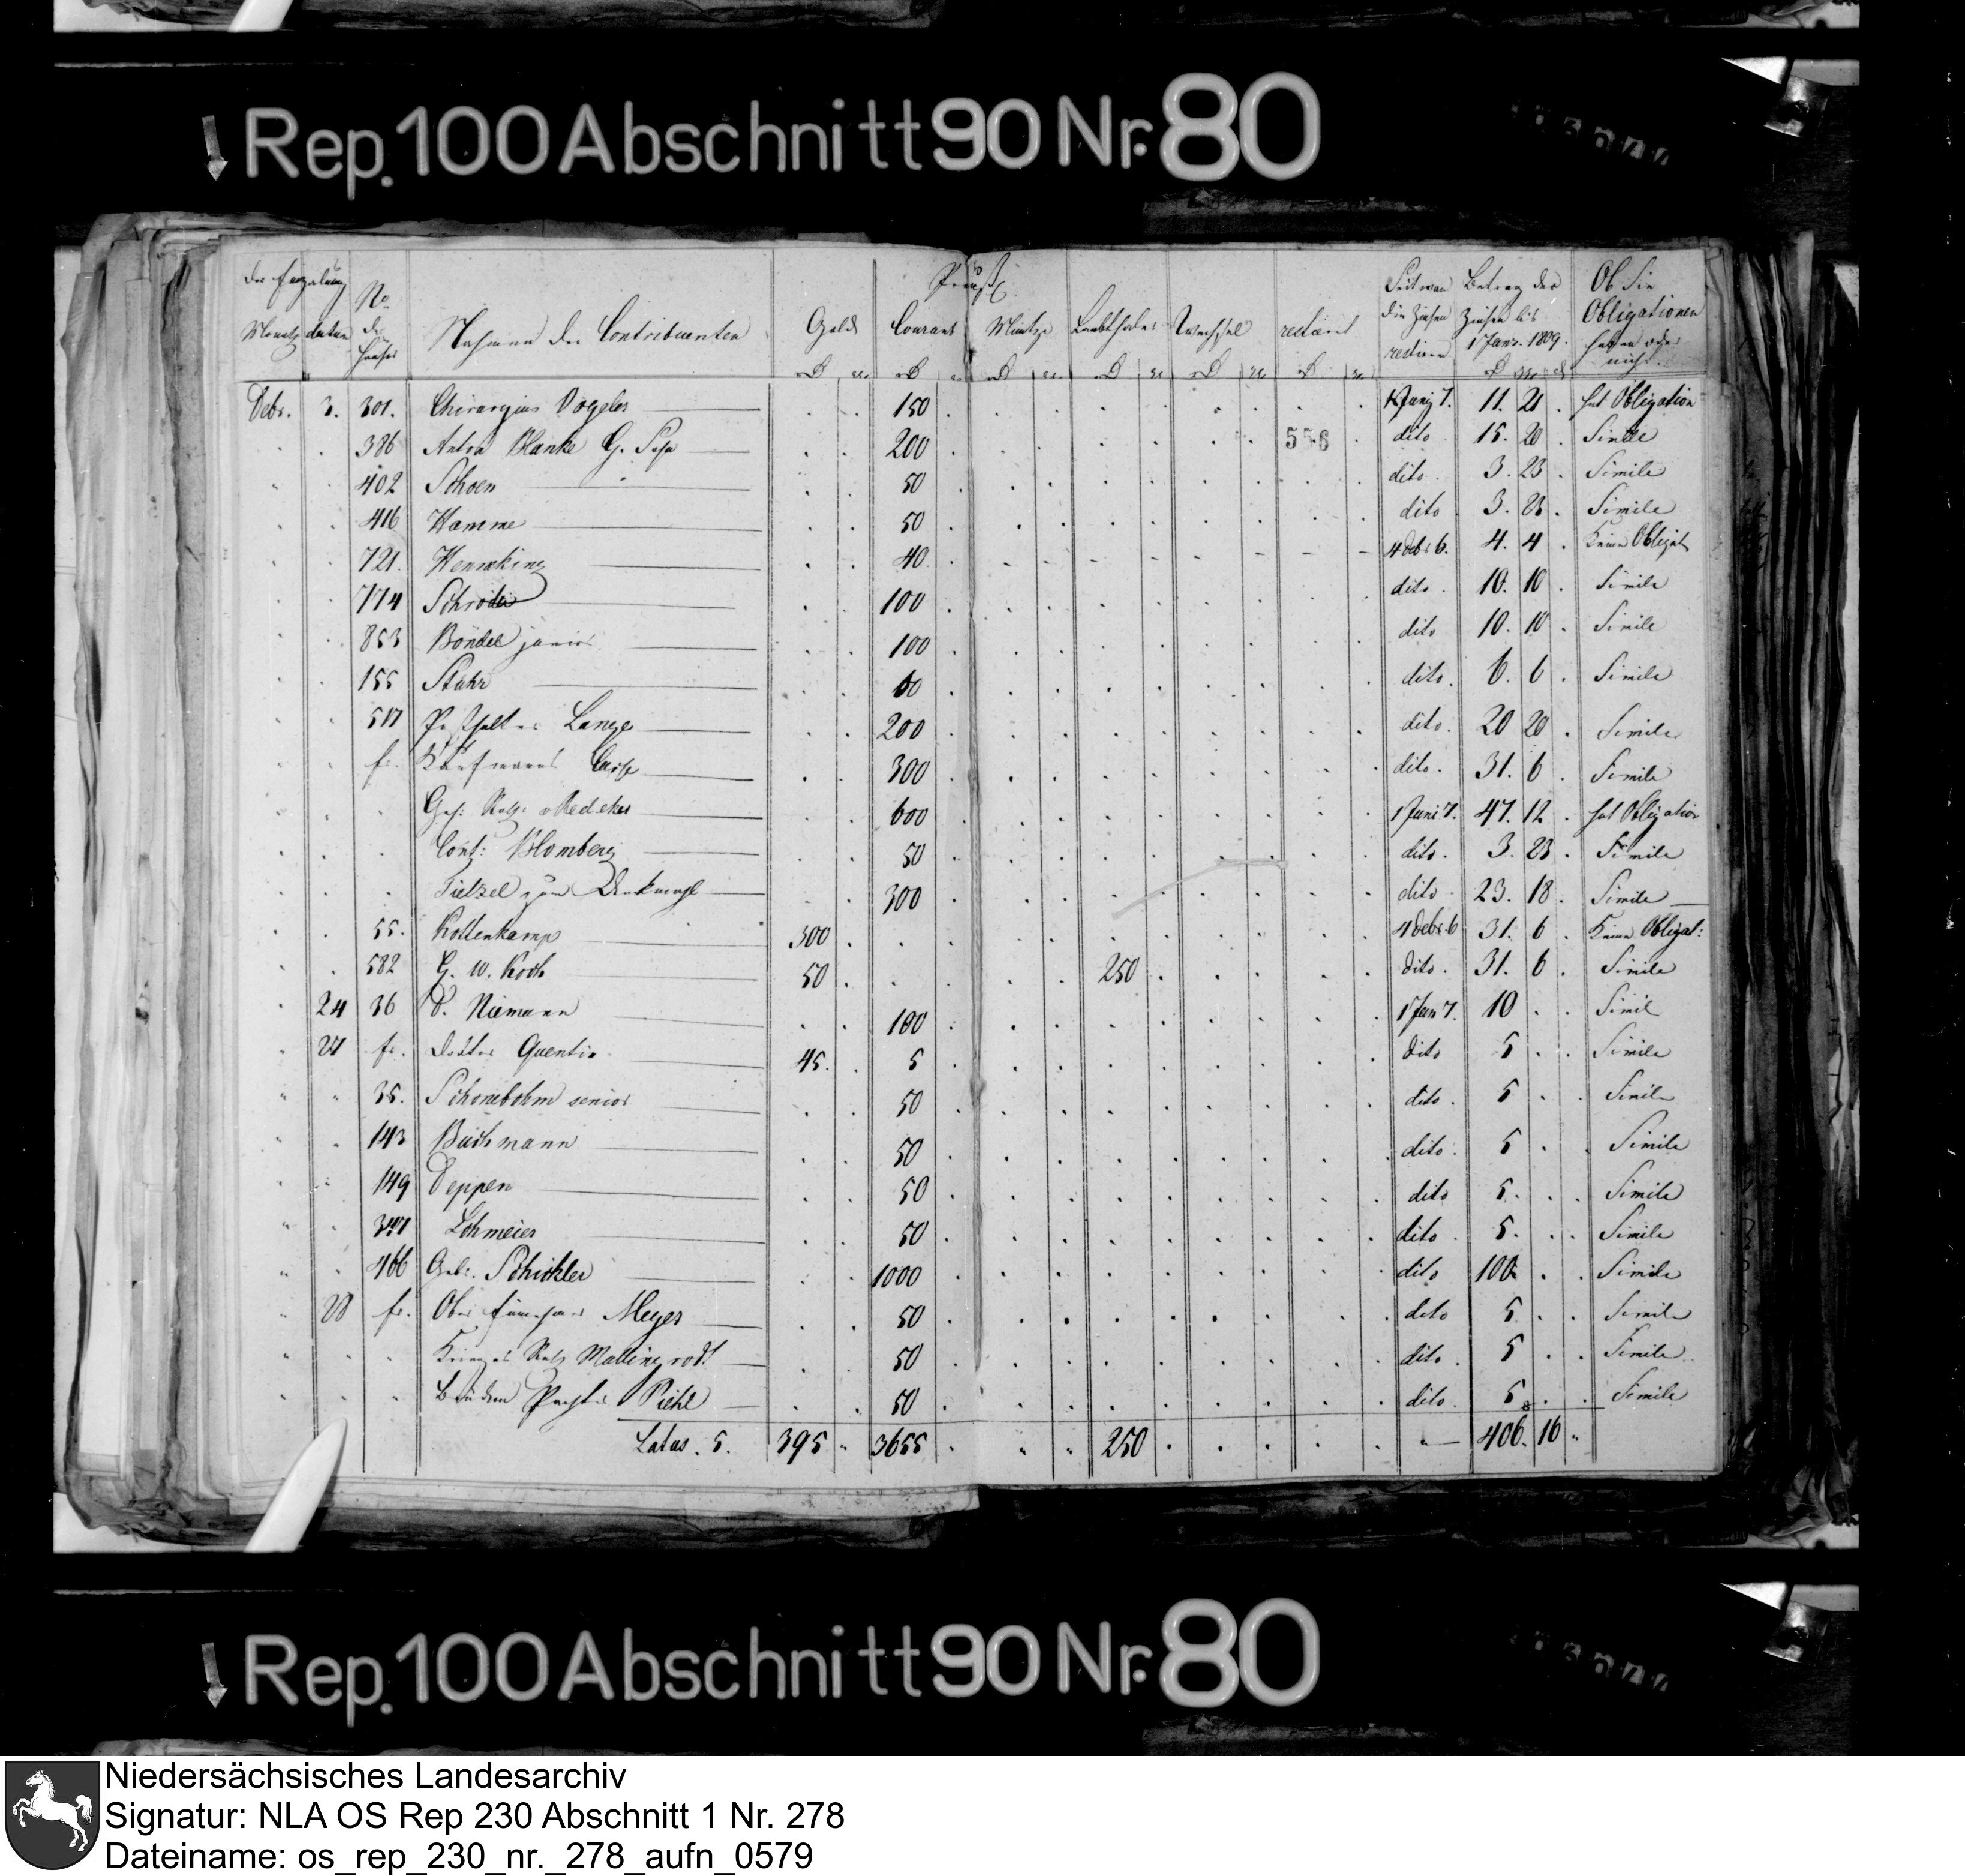 Rep. 100 Abschnitt 90 Nr. 80
Der Einzalung No Preuß Seit wann Betrag der Ob Sie
Monath datum der Häuser Nahmen der Contribuenten Gold Courant Müntze Laubthaler Wechsel restant die Zinsen restiren Zinsen bis 1 Janr. 1809. Obligationen haben oder nicht.
Debr. 3. 301. Chirurgus Vogeler 150 1 Junij 7. 11. 21 hat Obligation
386 Anton Blanke G. Sohn 200 dito 15. 20 Simile
556
402 Schoen 50 dito 3. 23 Simile
416 Hamme 50 dito 3. 23 Simile
721. Henseking 40 4 Debr 6. 4. 4 Keine Obligat
774 Schröder 100 dito 10. 10 Simile
853 Böndel junior 100 dito 10. 10 Simile
155 Stahr 60 dito 6. 6 Simile
517 Posthalter Lange 200 dito 20 20 Simile
fr. Kaufmann 300 dito 31. 6 Simile
Geh: Rath v Redeker 600 1 Juni 7. 47. 12 hat Obligation
Cons: Blomberg 50 dito 3. 23 Simile
Tietzel zum 300 dito 23. 18 Simile
55. Kollenkamp 300 4 Debr. 6 31. 6 Keine Obligat:
582 G. W. Koch 50 250 dito 31. 6 Simile
24 36 D. Niemann 100 1 Jan 7. 10 Simile
27 fr. Doctor Quentin 45. 5 dito 5 Simile
35. Schonebohm senior 50 dito 5 Simile
143 Buchmann 50 dito 5 Simile
149 Deppen 50 dito 5. Simile
347 Lohmeier 50 dito 5. Simile
466 Gebr. Schickler 1000 dito 100 Simile
28 fr. Ober Meyer 50 dito 5 Simile
Krieges Rath Mallincrodt 50 dito 5 Simile
Pastor Piehl 50 dito 5 Simile
Latus. 5. 395 3655 250 406. 16
Rep. 100 Abschnitt 90 Nr. 80
Niedersächsisches Landesarchiv
Signatur: NLA OS Rep 230 Abschnitt 1 Nr. 278
Dateiname: os_rep_230_nr._278_aufn_0579